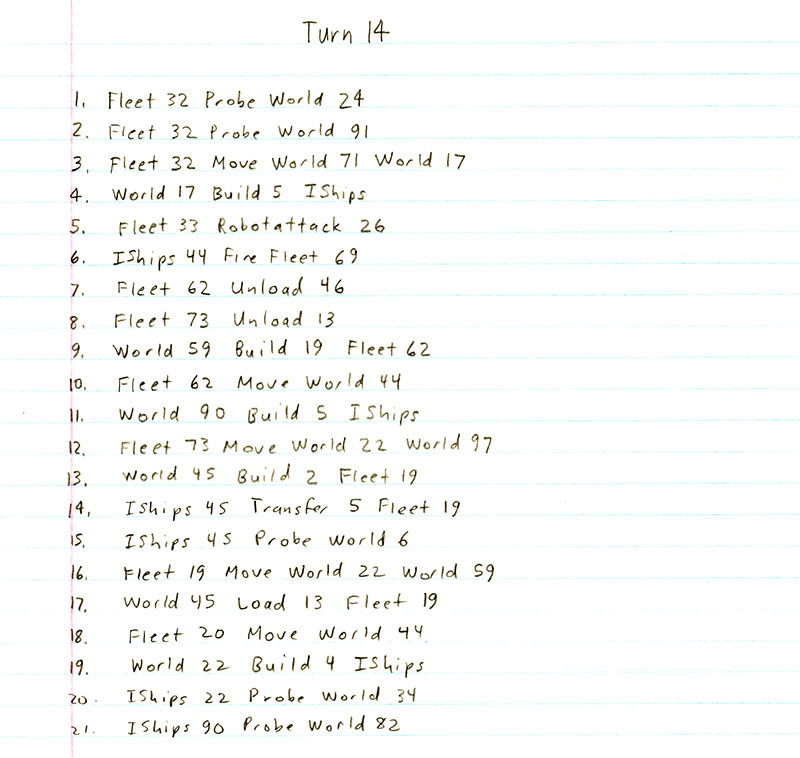 Turn 14
1. Fleet 32 Probe World 24
2. Fleet 32 Probe World 91
3. Fleet 32 Move World 71 World 17
4. World 17 Build 5 IShips
5. Fleet 33 Robotattack 26
6. IShips 44 Fire Fleet 69
7. Fleet 62 Unload 46
8. Fleet 73 Unload 13
9. World 59 Build 19 Fleet 62
10. Fleet 62 Move World 44
11. World 90 Build 5 IShips
12. Fleet 73 Move World 22 World 97
13. World 45 Build 2 Fleet 19
14. IShips 45 Transfer 5 Fleet 19
15. IShips 45 Probe World 6
16. Fleet 19 Move World 22 World 59
17. World 45 Load 13 Fleet 19
18. Fleet 20 Move World 44
19. World 22 Build 4 IShips
20. IShips 22 Probe World 34
21. IShips 90 Probe World 82